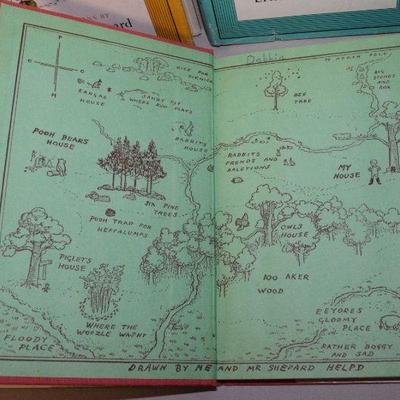 P
O
O
H
NICE FOR
PICNICS
Debbie
TO NORTH POLE
BIG
STONES
AND
ROX
KANGAS
HOUSE
SANDY PIT
WHERE ROO PLAYS
BEE
TREE
RABBITS
HOUSE
POOH BEARS
HOUSE
RABBITS
FRENDS AND
RALETIONS
MY
HOUSE
SIX PINE
TREES
POOH TRAP FOR
HEFFALUMPS
OWLS
HOUSE
PIGLETS
HOUSE
100 AKER
WOOD
WHERE THE
WOOZLE WASNT
FLOODY
PLACE
EEYORES
GLOOMY
PLACE
RATHER BOGGY
AND SAD
DRAWN BY ME AND MR SHEPARD HELPD